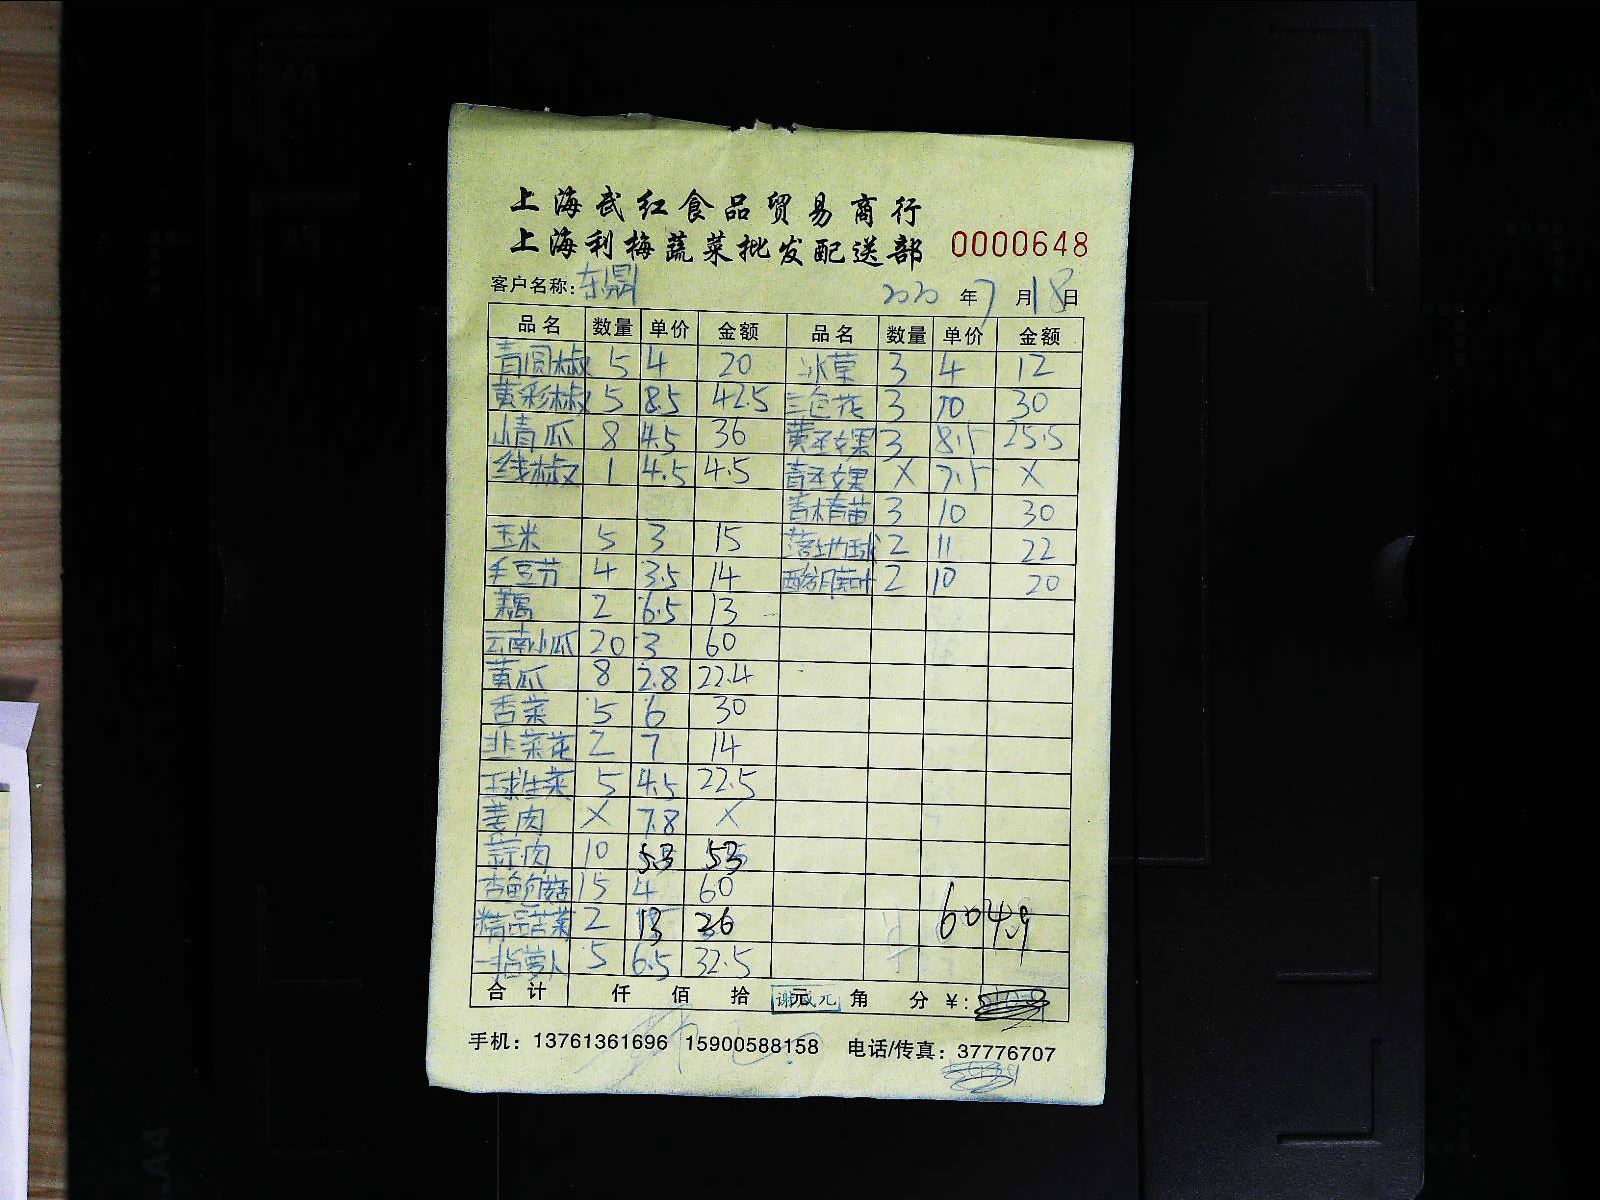 上海武红食品贸易商行
上海利梅蔬菜批发配送部 0000648
客户名称:东鼎 2020年7月18日
品名 数量 单价 金额 品名 数量 单价 金额
青圆椒 5 4 20 冰草 3 4 12
黄彩椒 5 8.5 42.5 三色花 3 10 30
小青瓜 8 4.5 36 黄圣女果 3 8.5 25.5
线椒 1 4.5 4.5 青圣女果 X 7.5 X
3 10 30
玉米 5 3 15 2 11 22
毛豆节 4 3.5 14 2 10 20
藕 2 6.5 13
云南小瓜 20 3 60
黄瓜 8 2.8 22.4
香菜 5 6 30
韭菜花 2 7 14
球生菜 5 4.5 22.5
姜肉 X 7.8 X
蒜肉 10 5.3 53
杏鲍菇 15 4 60
精品苦菊 2 13 26
一指萝卜 5 6.5 32.5
604.9
合计 仟 佰 拾 元 角 分 ¥:
谢成元
手机：13761361696 15900588158 电话/传真：37776707